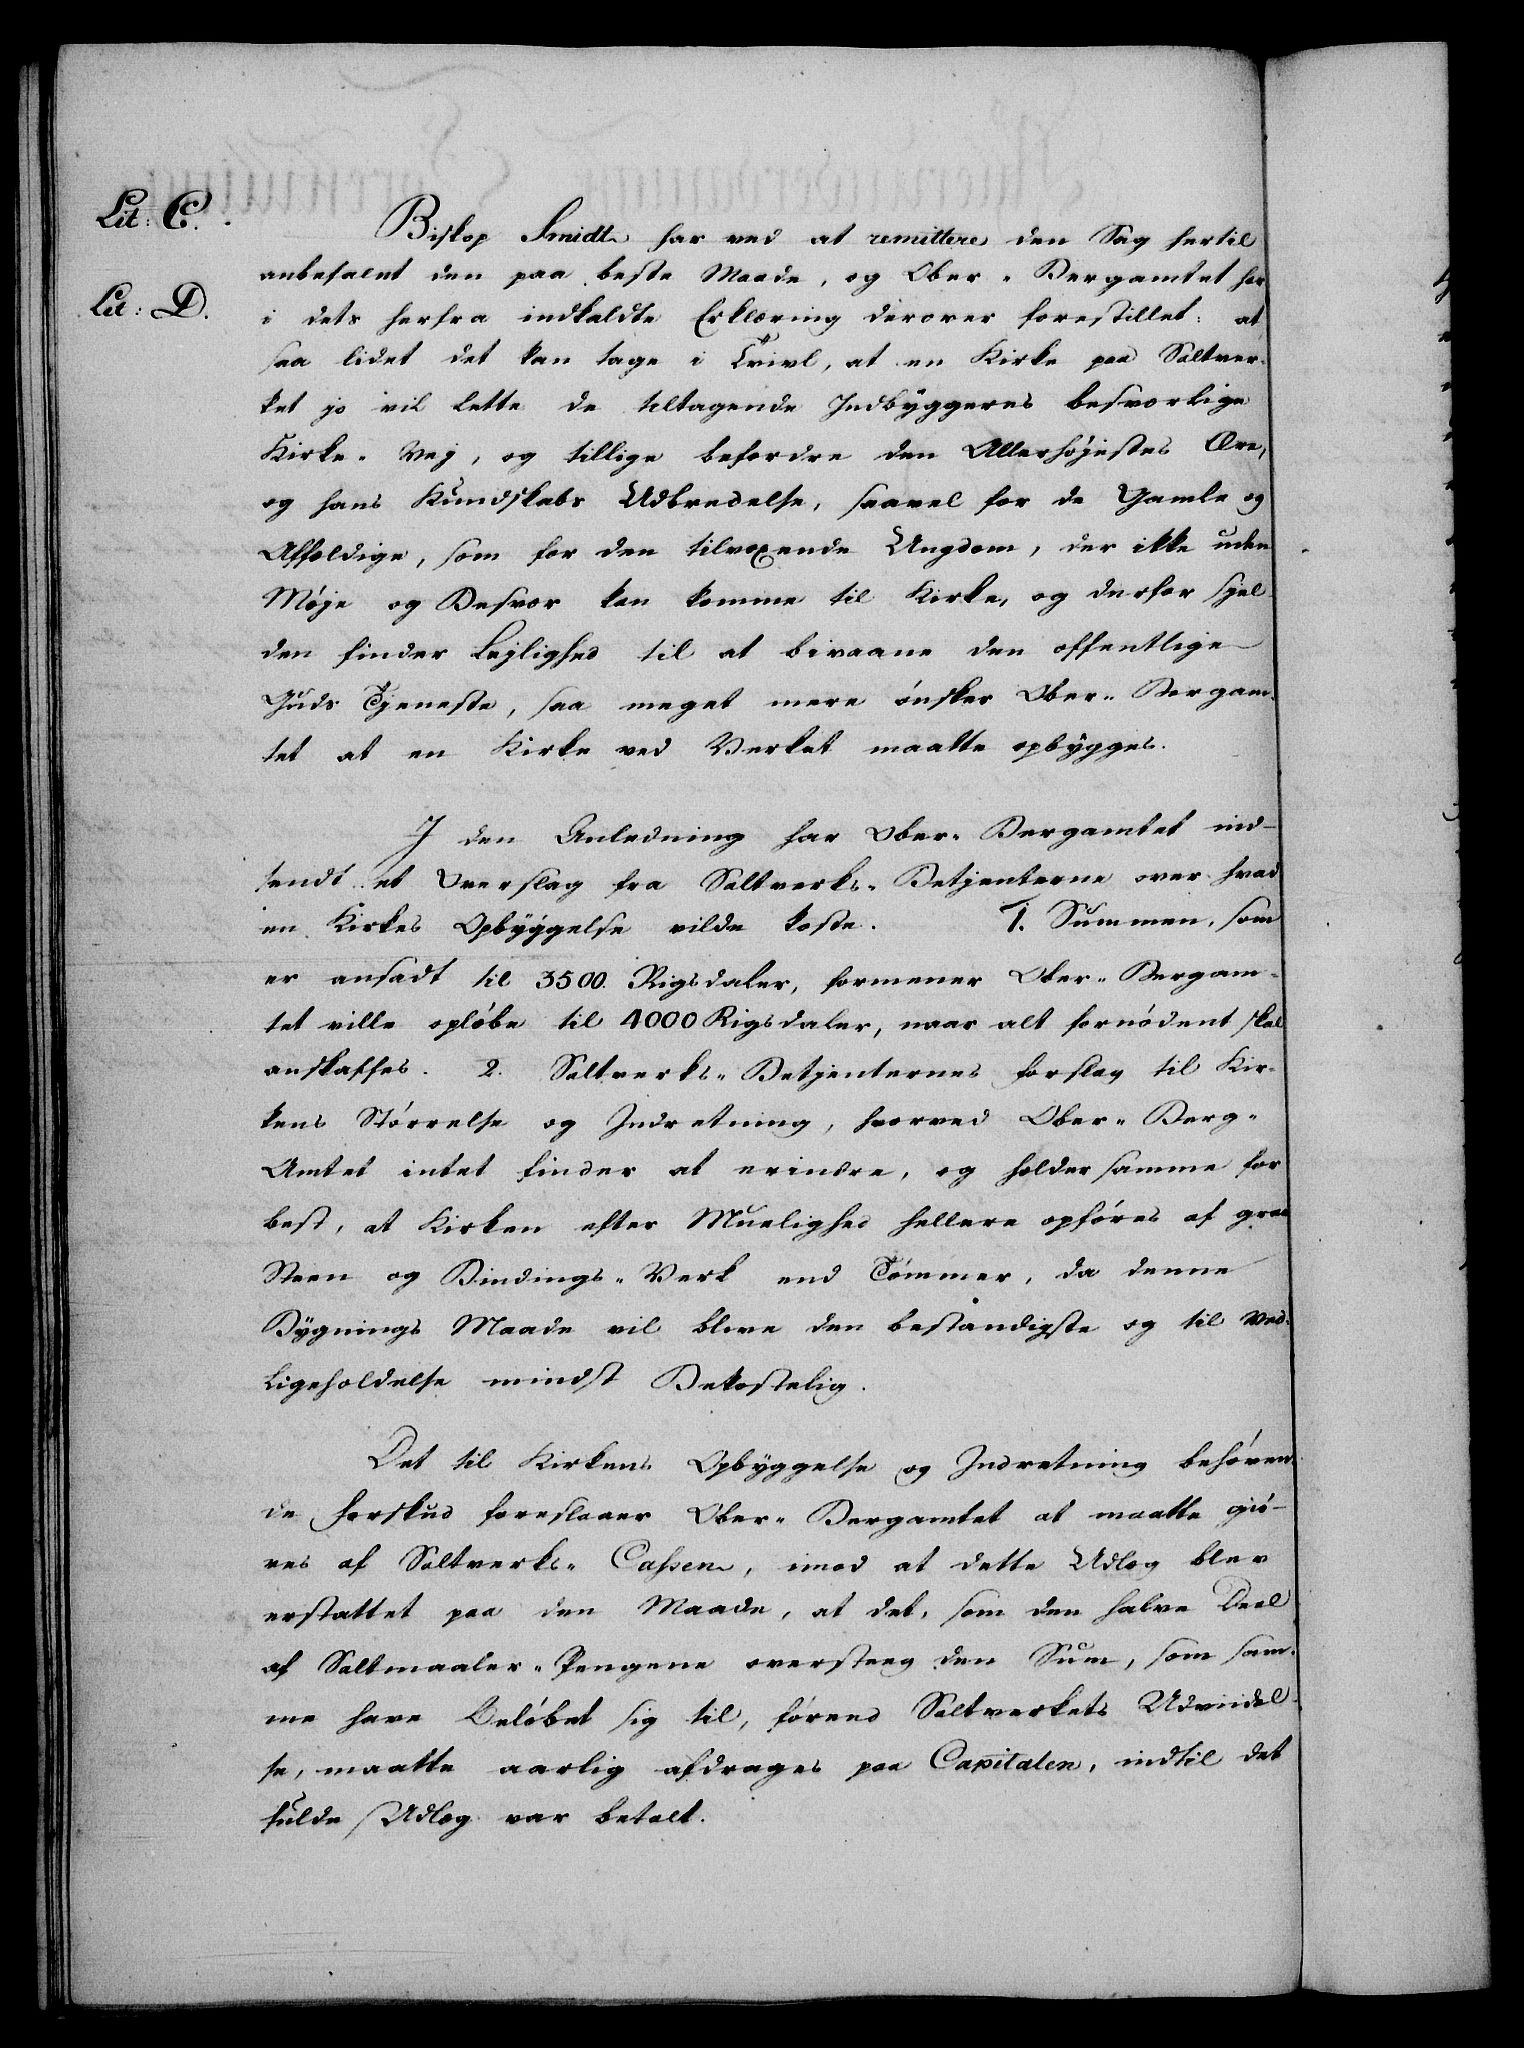 Lit: C.
Biskop Smidt har ved at remittere den Sag hertil
anbefalet den paa beste Maade, og Ober-Bergamtet har
Lit: D.
i dets herfra indkaldte Erklæring derover forestillet: at
saa lidet det kan tage i Tvivl, at en Kirke paa Saltver-
ket jo vil lette de tiltagende Indbyggeres besværlige
Kirke-Vej, og tillige befordre den Allerhøjestes Ære,
og hans Kundskabs Udbredelse, saavel for de Gamle og
Affældige, som for den tilvoxende Ungdom, der ikke uden
Møje og Besvær kan komme til Kirke, og derfor sjel-
den finder Lejlighed til at bivaane den offentlige
Guds Tjeneste, saa meget mere ønsker Ober-Bergam-
tet at en Kirke ved Verket maatte opbygges.
I den Anledning har Ober-Bergamtet ind-
sendt et Overslag fra Saltverks-Betjenterne over hvad
en Kirkes Opbyggelse vilde koste. 1. Summen, som
er ansadt til 3500. Rigsdaler, formener Ober-Bergam-
tet ville opløbe til 4000 Rigsdaler, naar alt fornødent skal
anskaffes. 2. Saltverks-Betjenternes forslag til Kir-
kens Størrelse og Indretning, hvorved Ober-Berg-
Amtet intet finder at erindre, og holder samme for
best, at Kirken efter Muelighed hellere opføres af graa
Steen og Bindings-Verk end Tømmer, da denne
Bygnings Maade vil blive den bestandigste og til Ved-
ligeholdelse mindst Bekostelig.
Det til Kirkens Opbyggelse og Indretning behøven-
de forskud foreslaaer Ober-Bergamtet at maatte giø-
res af Saltverks-Cassen, imod at dette Udlæg blev
erstattet paa den Maade, at det, som den halve Deel
af Saltmaaler-Pengene oversteeg den Sum, som sam-
me have Beløbet sig til, førend Saltverkets Udviidel-
se, maatte aarlig afdrages paa Capitalen, indtil det
fulde Udlæg var betalt.